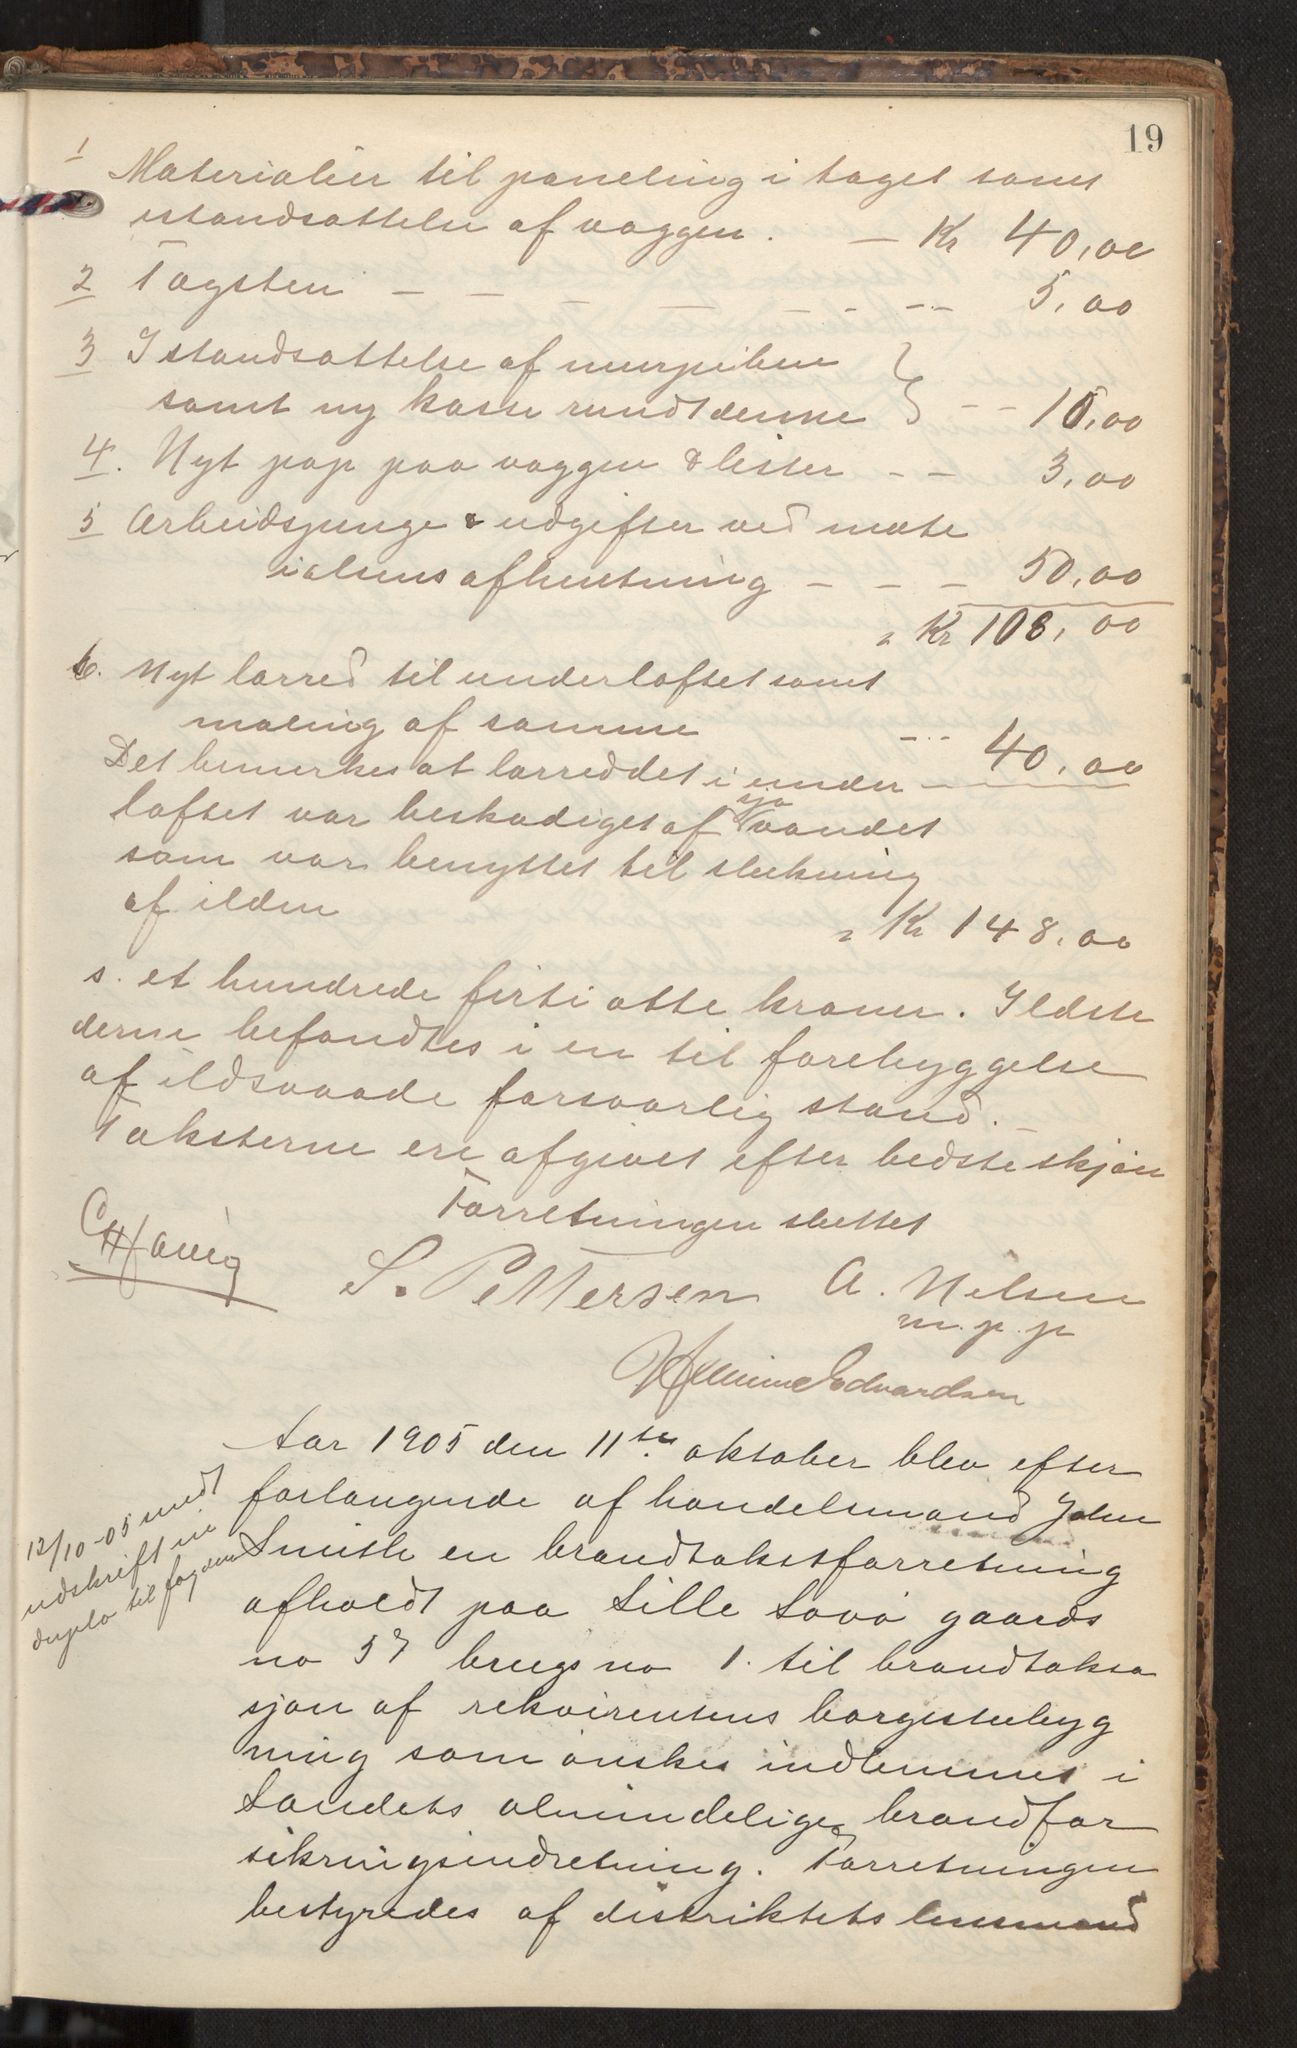 19
1 Materialier til paneling i taget samt
istandsættelse af væggen. — Kr 40,00
2 Tagsten — — — — — — 5,00
3 Istandsættelse af murpiben
samt ny kasse rundt denne } — — 10,00
4. Nyt pap paa væggen & lister — — 3,00
5 Arbeidspenge & udgifter ved mate
ialiens afhentning — — — 50,00
= Kr 108,00
6. Nyt lærred til underloftet samt
maling af samme --- 40,00
Det bemerkes at lærreddet i under
loftet var beskadiget af sjøvandet
som var benyttet til slukning
af ilden
= Kr 148,00
s. et hundrede firti otte kroner. Ildste
derne befandtes i en til forebyggelse
af ildsvaade forsvarlig stand. —
Taksterne ere afgivet efter bedste skjøn
Forretningen sluttet
S. Pettersen A. Nilsen
m. p. p
Edvardsen
Aar 1905 den 11te oktober blev efter
forlangende af handelsmand John
Smith en brandtakstforretning
afholdt paa Lille Tavø gaards
no 57 brugs no 1. til brandtaksa
sjon af rekvirentens borgestuebyg
ning som ønskes indlemmet i
Landets almindelige brandfor
sikringsindretning. Forretningen
bestyredes af distriktets lensmand
12/10-05 meddt
udskrift in
duplo til fogden